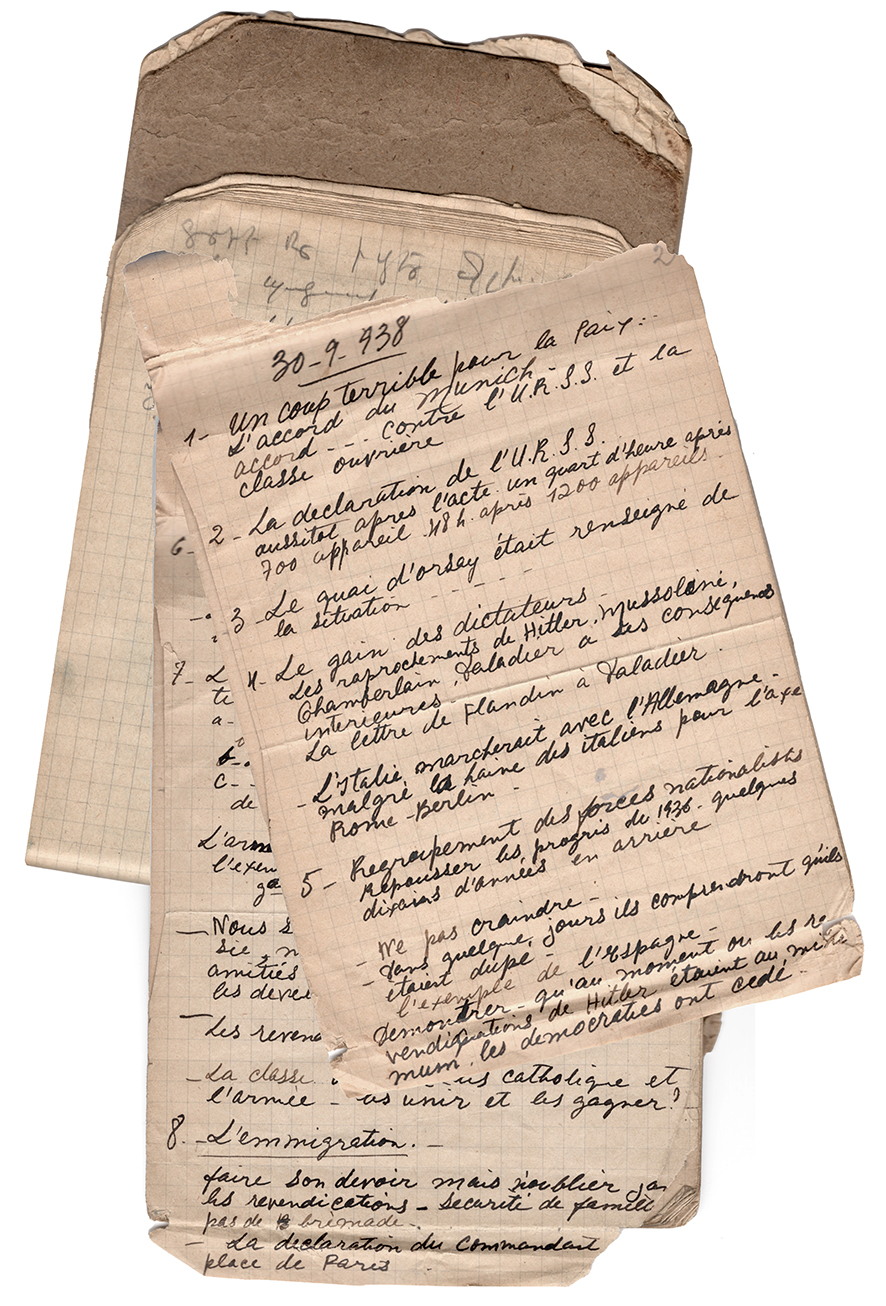 2
30-9-938
1- Un coup terrible pour la Paix.-
L'accord du Munich -
accord - - - contre l'U.R.S.S. et la
classe ouvrière
2- La declaration de l'U.R.S.S.
aussitot après l'acte un quart d'heure après
700 appareil 48 h. après 1200 appareils -
3- Le quai d'orsay était renseigné de
la situation - - - - -
4- Le gain des dictateurs -
Les raprochements de Hitler, Mussoline,
Chamberlain, Daladier a ses consequences
interieures -
La lettre de Flandin à Daladier.
- L'Italie marcherait avec l'Allemagne -
malgré la haine des italiens pour l'axe
Rome-Berlin -
5- Regroupement des forces nationalists
Repousser les progris de 1936 - quelques
dixains d'années en arrière
- Ne pas craindre -
- Dans quelque jours ils comprendront qu'ils
étaient dupé -
l'exemple de l'Espagne -
Demontrer - qu'au moment ou les re
vendiquations de Hitler étaient au
mum, les democraties ont cedé.
6-
7- L
te
a-
b-
c-
de
L'arm
l'exem
ga
- Nous s
sie, n
amitiés
les devei
- Les revena
- La classe us catholique et
l'armée - us unir et les gagner?
8.- L'emmigration.-
faire son devoir mais n'oublier
les revendications - securité de famill
pas de brimade -
- La declaration du Commandant
place de Paris